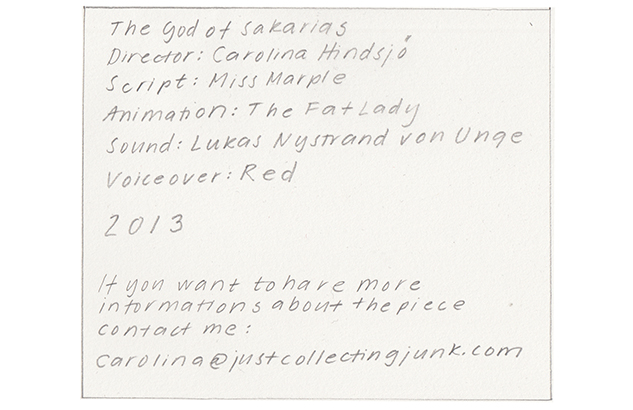 The God of Sakarias
Director: Carolina Hindsjö
Script: Miss Marple
Animation: The Fat Lady
Sound: Lukas Nystrand von Unge
Voiceover: Red
2013
If you want to have more
informations about the piece
contact me:
carolina@justcollectingjunk.com